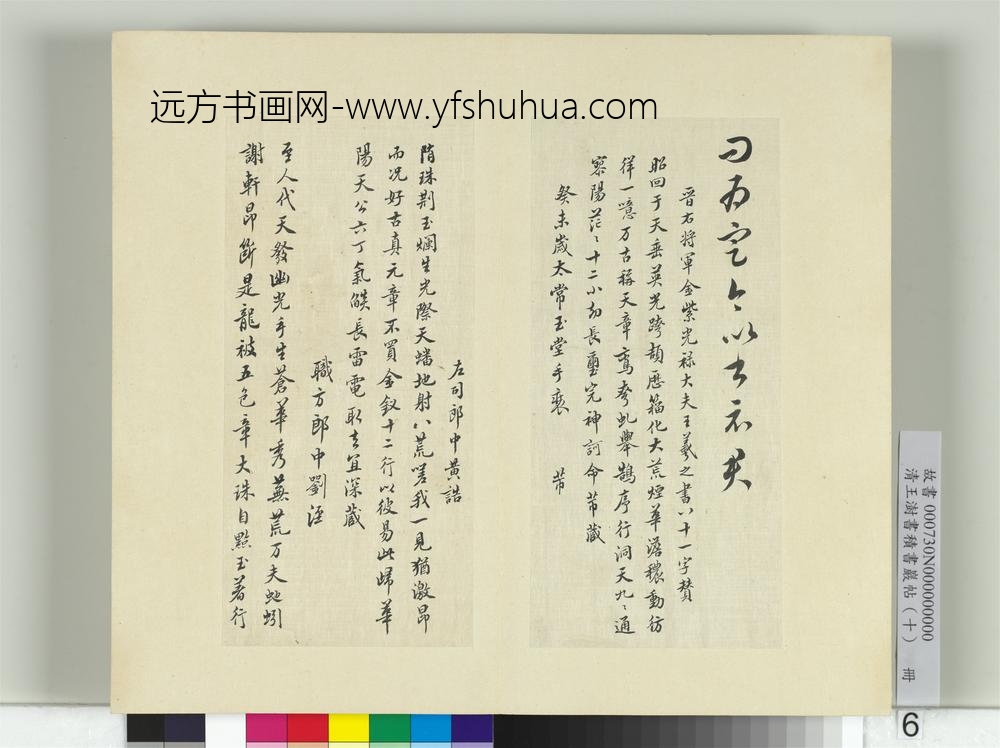 远方书画网-www.yfshuhua.com
晉右將軍金紫光祿大夫王羲之書八十一字贊
昭回于天垂英光跨頡歷籀化大荒煙華澹穠動彷
徉一噫万古稱天章鸞夸虬舉鵠序行洞天九〻通
寥陽茫〻十二小劫長璽完神訶命芾藏
癸未歲太常玉堂手裝 芾
左司郎中黃誥
隋珠荆玉爛生光際天蟠地射八荒嗟我一見猶激昂
而况好古真元章不買金釵十二行以彼易此歸華
陽天公六丁氣燄長雷電取去宜深藏
職方郎中劉涇
至人代天發幽光手生蒼華秀蕪荒万夫虵蚓
謝軒昂斷是龍被五色章大珠自點玉著行
故書000730N000000000
清王澍書積書巖帖(十) 冊
6